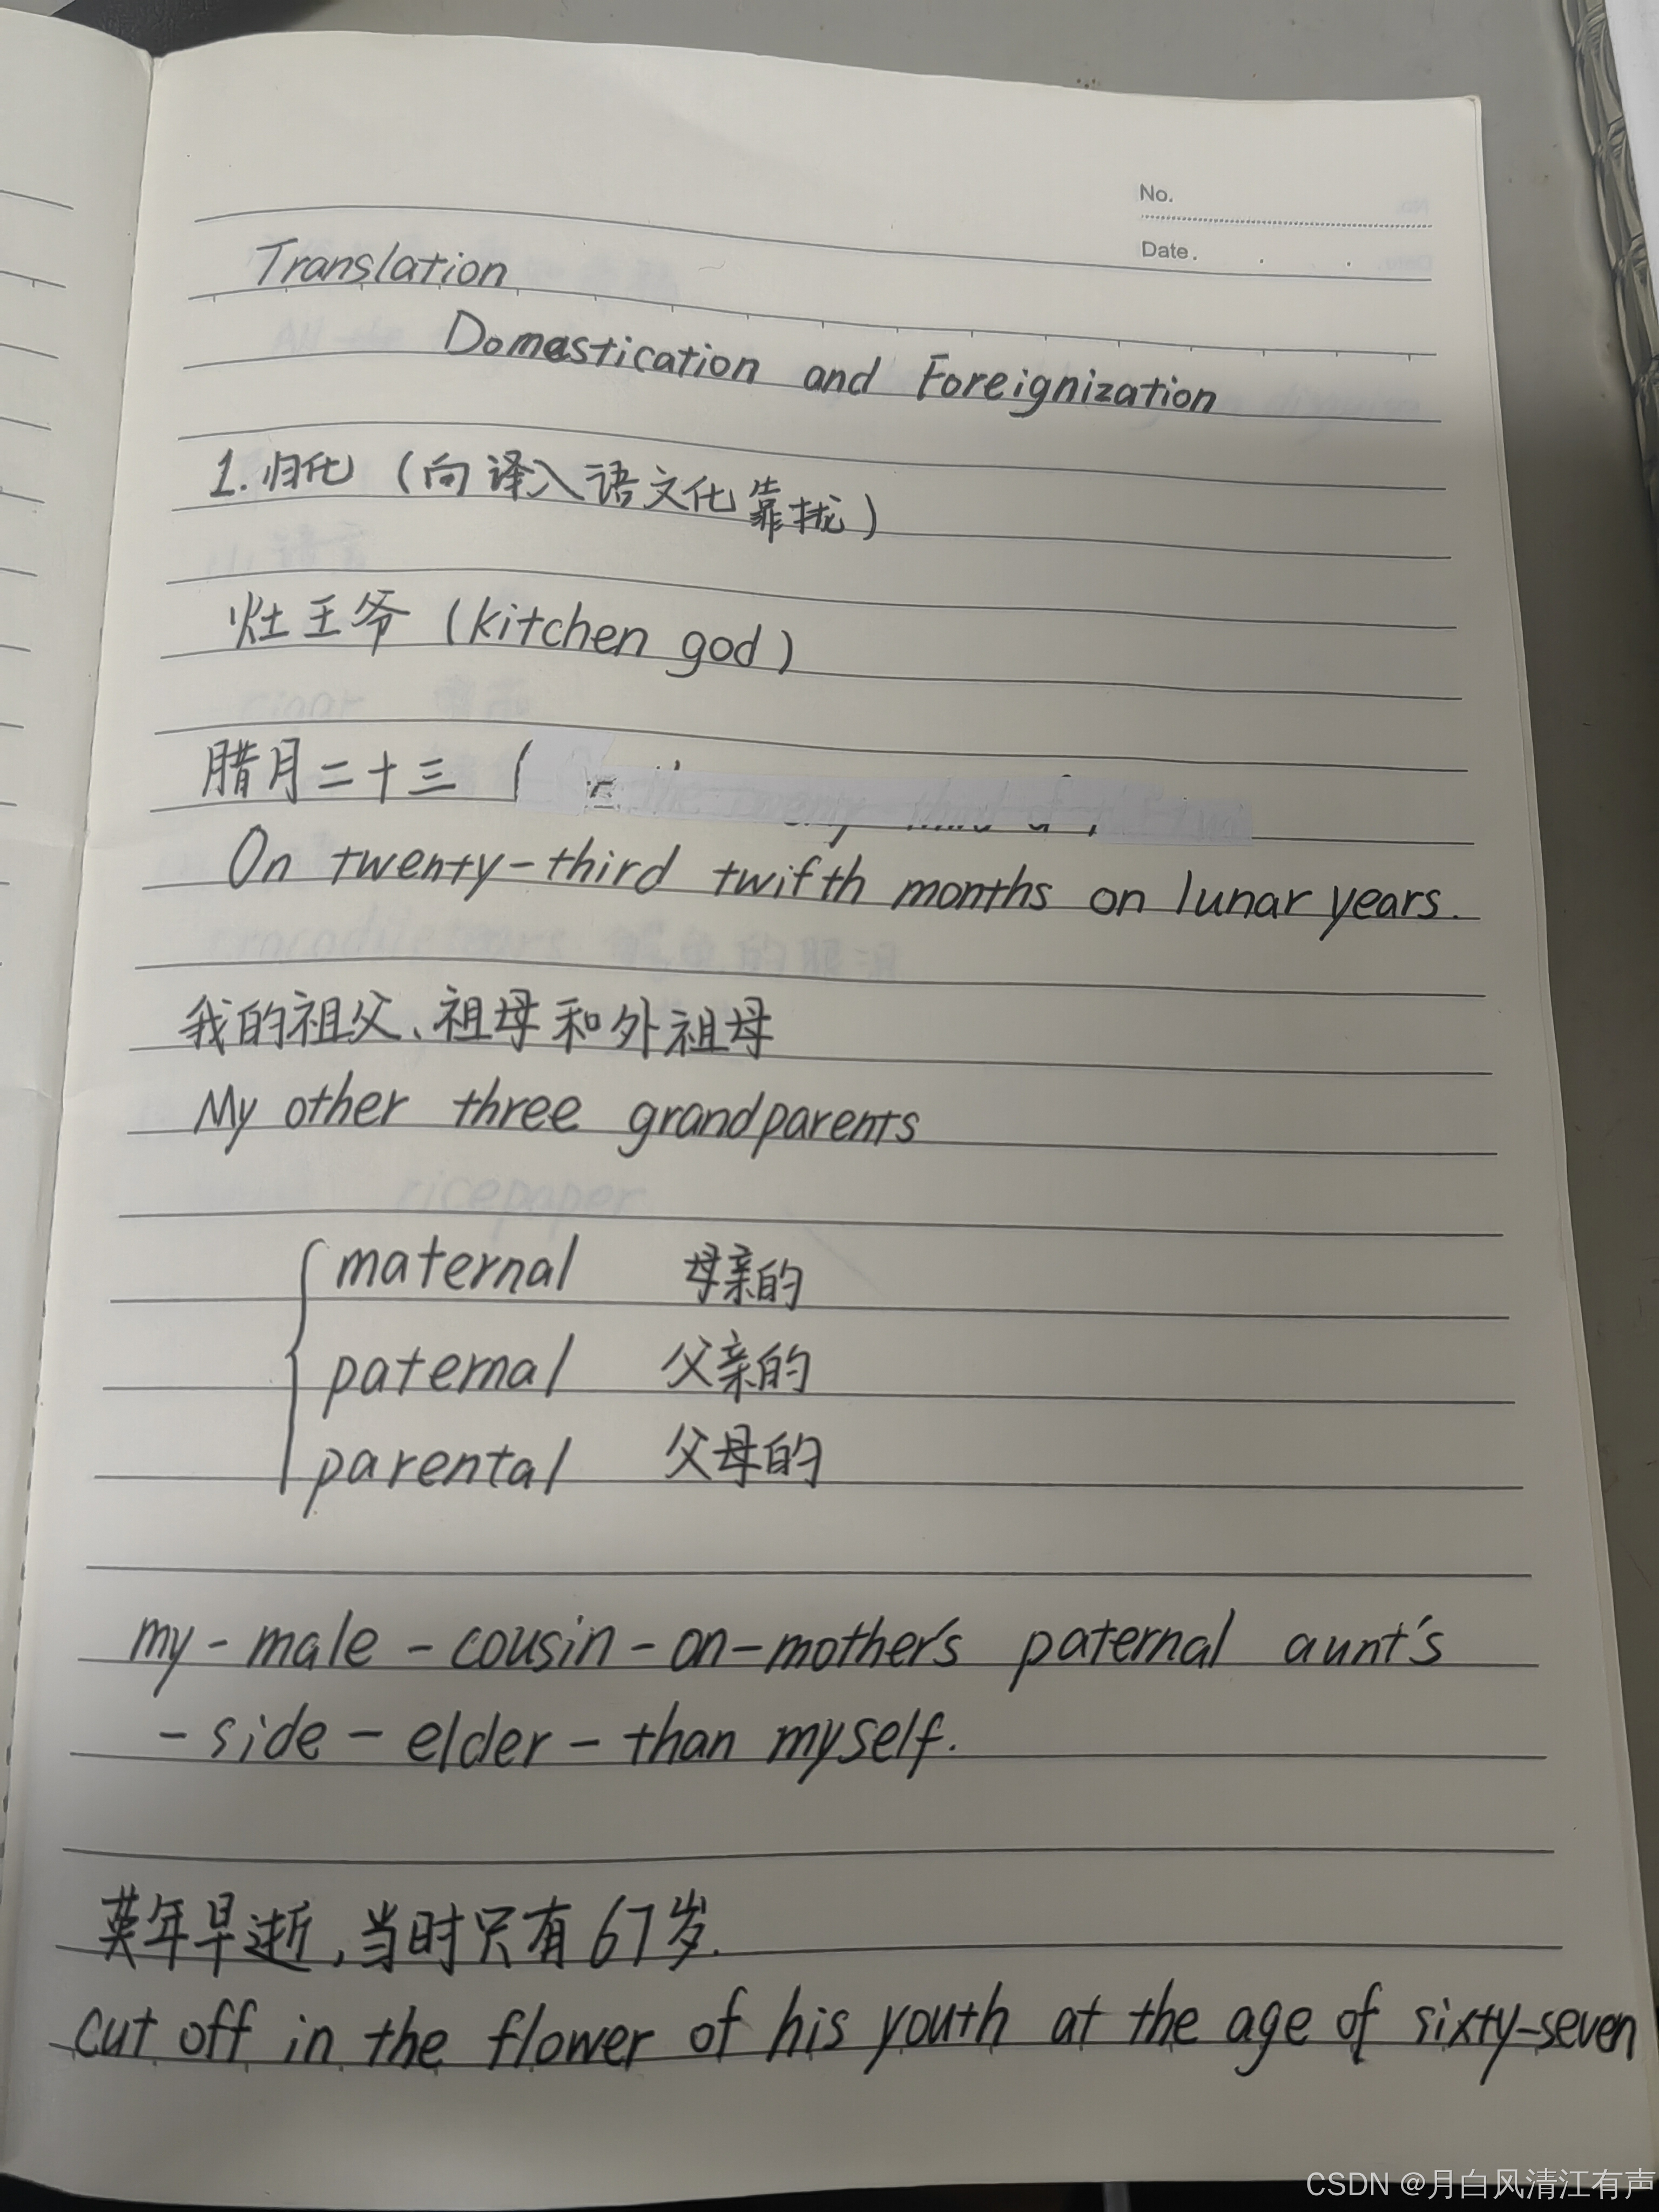 No.
Date.
Translation
Domestication and Foreignization
1.归化（向译入语文化靠拢）
灶王爷（kitchen god）
腊月二十三（
On twenty-third twifth months on lunar years.
我的祖父、祖母和外祖母
My other three grandparents
maternal 母亲的
paternal 父亲的
parental 父母的
my-male-cousin-on-mother's paternal aunt's
-side-elder-than myself.
英年早逝,当时只有67岁.
cut off in the flower of his youth at the age of sixty-seven
CSDN @月白风清江有声